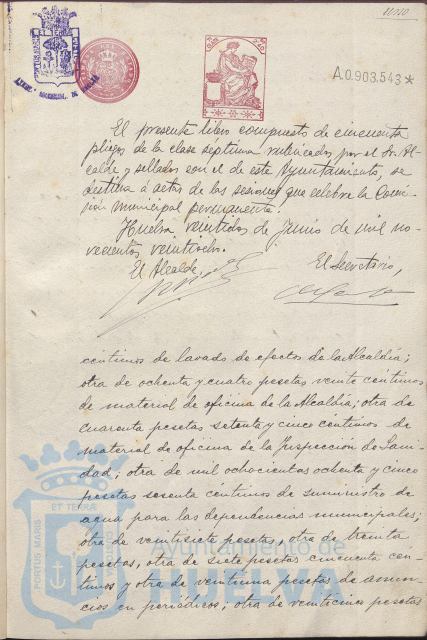 A.0.903.543*
El presente libro compuesto de cincuenta
pliegos de la clase séptima rubricados por el Sr. Al-
calde y sellados con el de este Ayuntamiento, se
destina á actas de las sesiones que celebre la Comi-
sión municipal permanente.
Huelva veintidos de Junio de mil no-
vecientos veintiocho.
El Alcalde,
El Secretario,
céntimos de lavado de efectos de la Alcaldía;
otra de ochenta y cuatro pesetas veinte céntimos
de material de oficina de la Alcaldía; otra de
cuarenta pesetas setenta y cinco céntimos de
material de oficina de la Inspección de Sani-
dad; otra de mil ochocientas ochenta y cinco
pesetas sesenta céntimos de suministro de
agua para las dependencias municipales;
otra de veintisiete pesetas, otra de treinta
pesetas, otra de siete pesetas cincuenta cén-
timos y otra de veintiuna pesetas de anun-
cios en periódicos; otra de veinticinco pesetas
PORTUS MARIS
ET TERRA
CUSTODIA
Ayuntamiento de
HUELVA